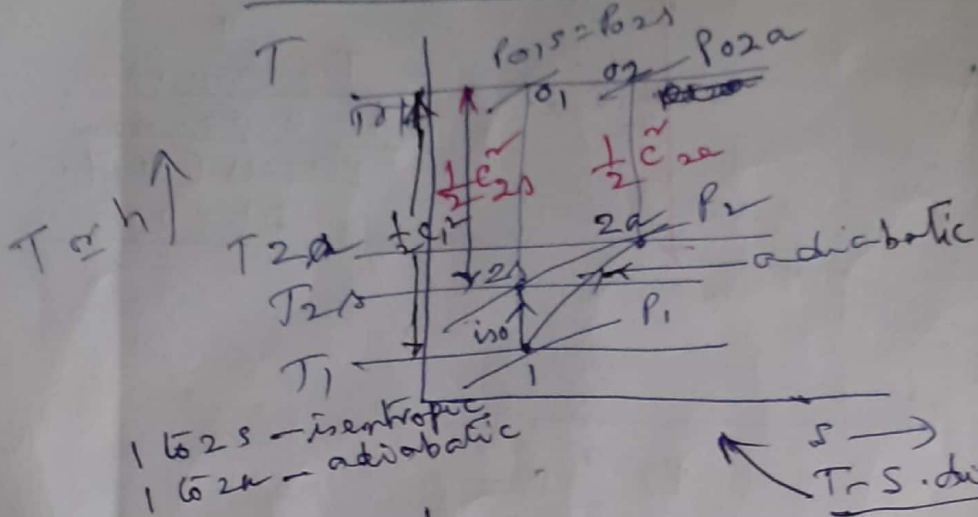 T
P01s = P02s
P02a
01
02
½ c₁²
½ c²2s
½ c²2a
T ≈ h ↑
T2a
2a
P2
adiabatic
T2s
2s
iso
P1
T1
1
1 to 2s - isentropic
1 to 2a - adiabatic
S →
T-S.di